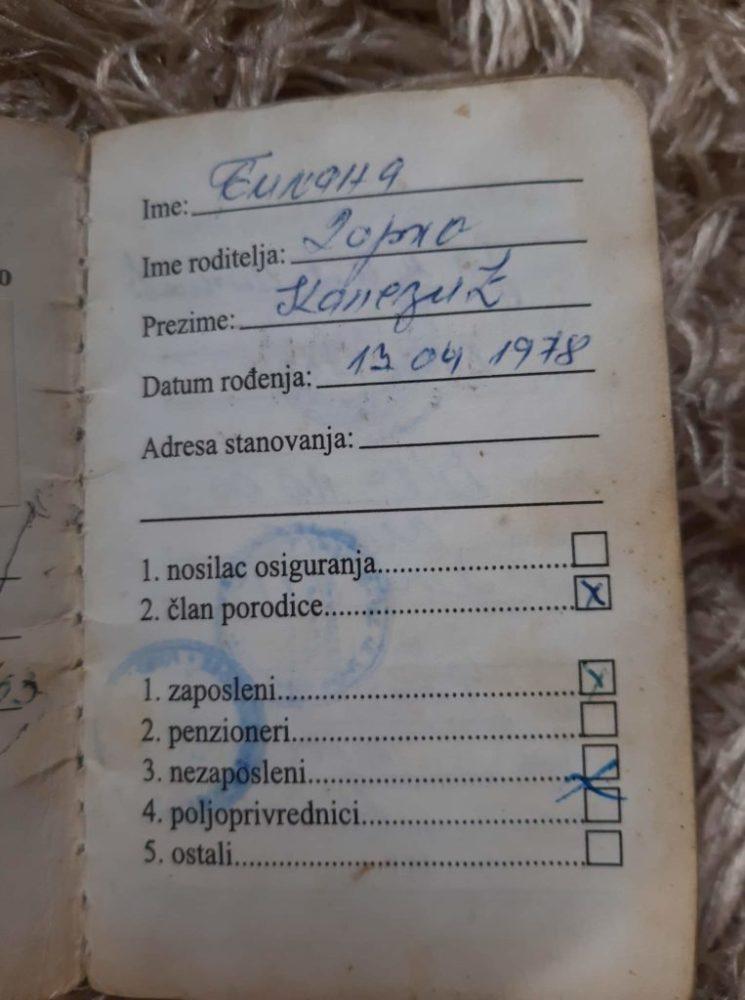 Ime: Биљана
Ime roditelja:
Prezime:
Datum rođenja: 13 04 1978
Adresa stanovanja:
1. nosilac osiguranja
2. član porodice X
1. zaposleni X
2. penzioneri
3. nezaposleni X
4. poljoprivrednici
5. ostali